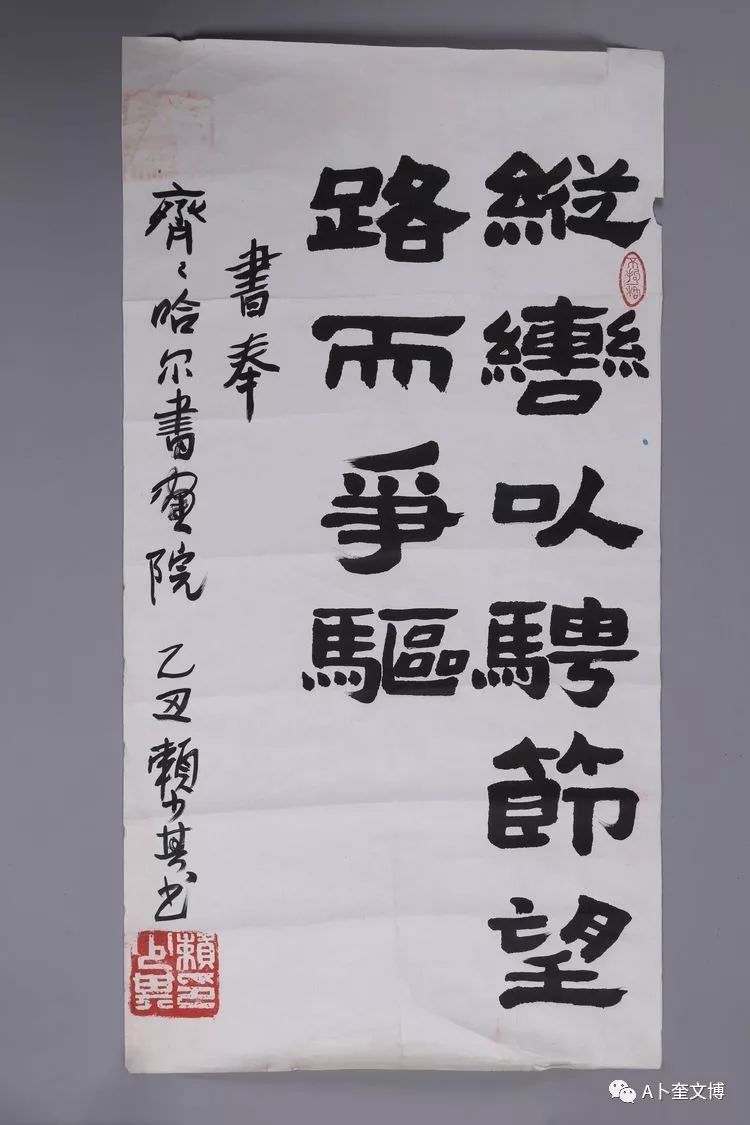 縱轡以騁節望
路而爭驅
書奉
齊〻哈尔書畫院 乙丑 賴少其书
賴印少其
A卜奎文博